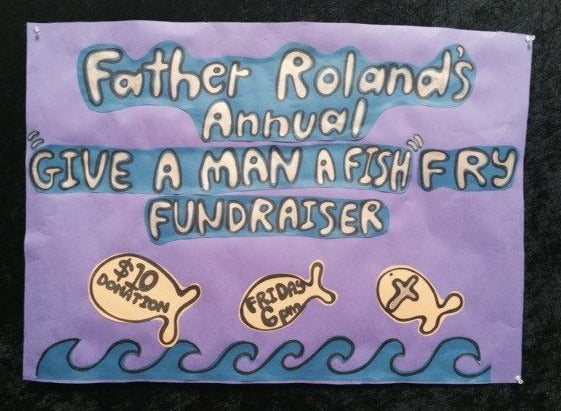 Father Roland's
Annual
"GIVE A MAN A FISH" FRY
FUNDRAISER
$10
DONATION
FRIDAY
6pm